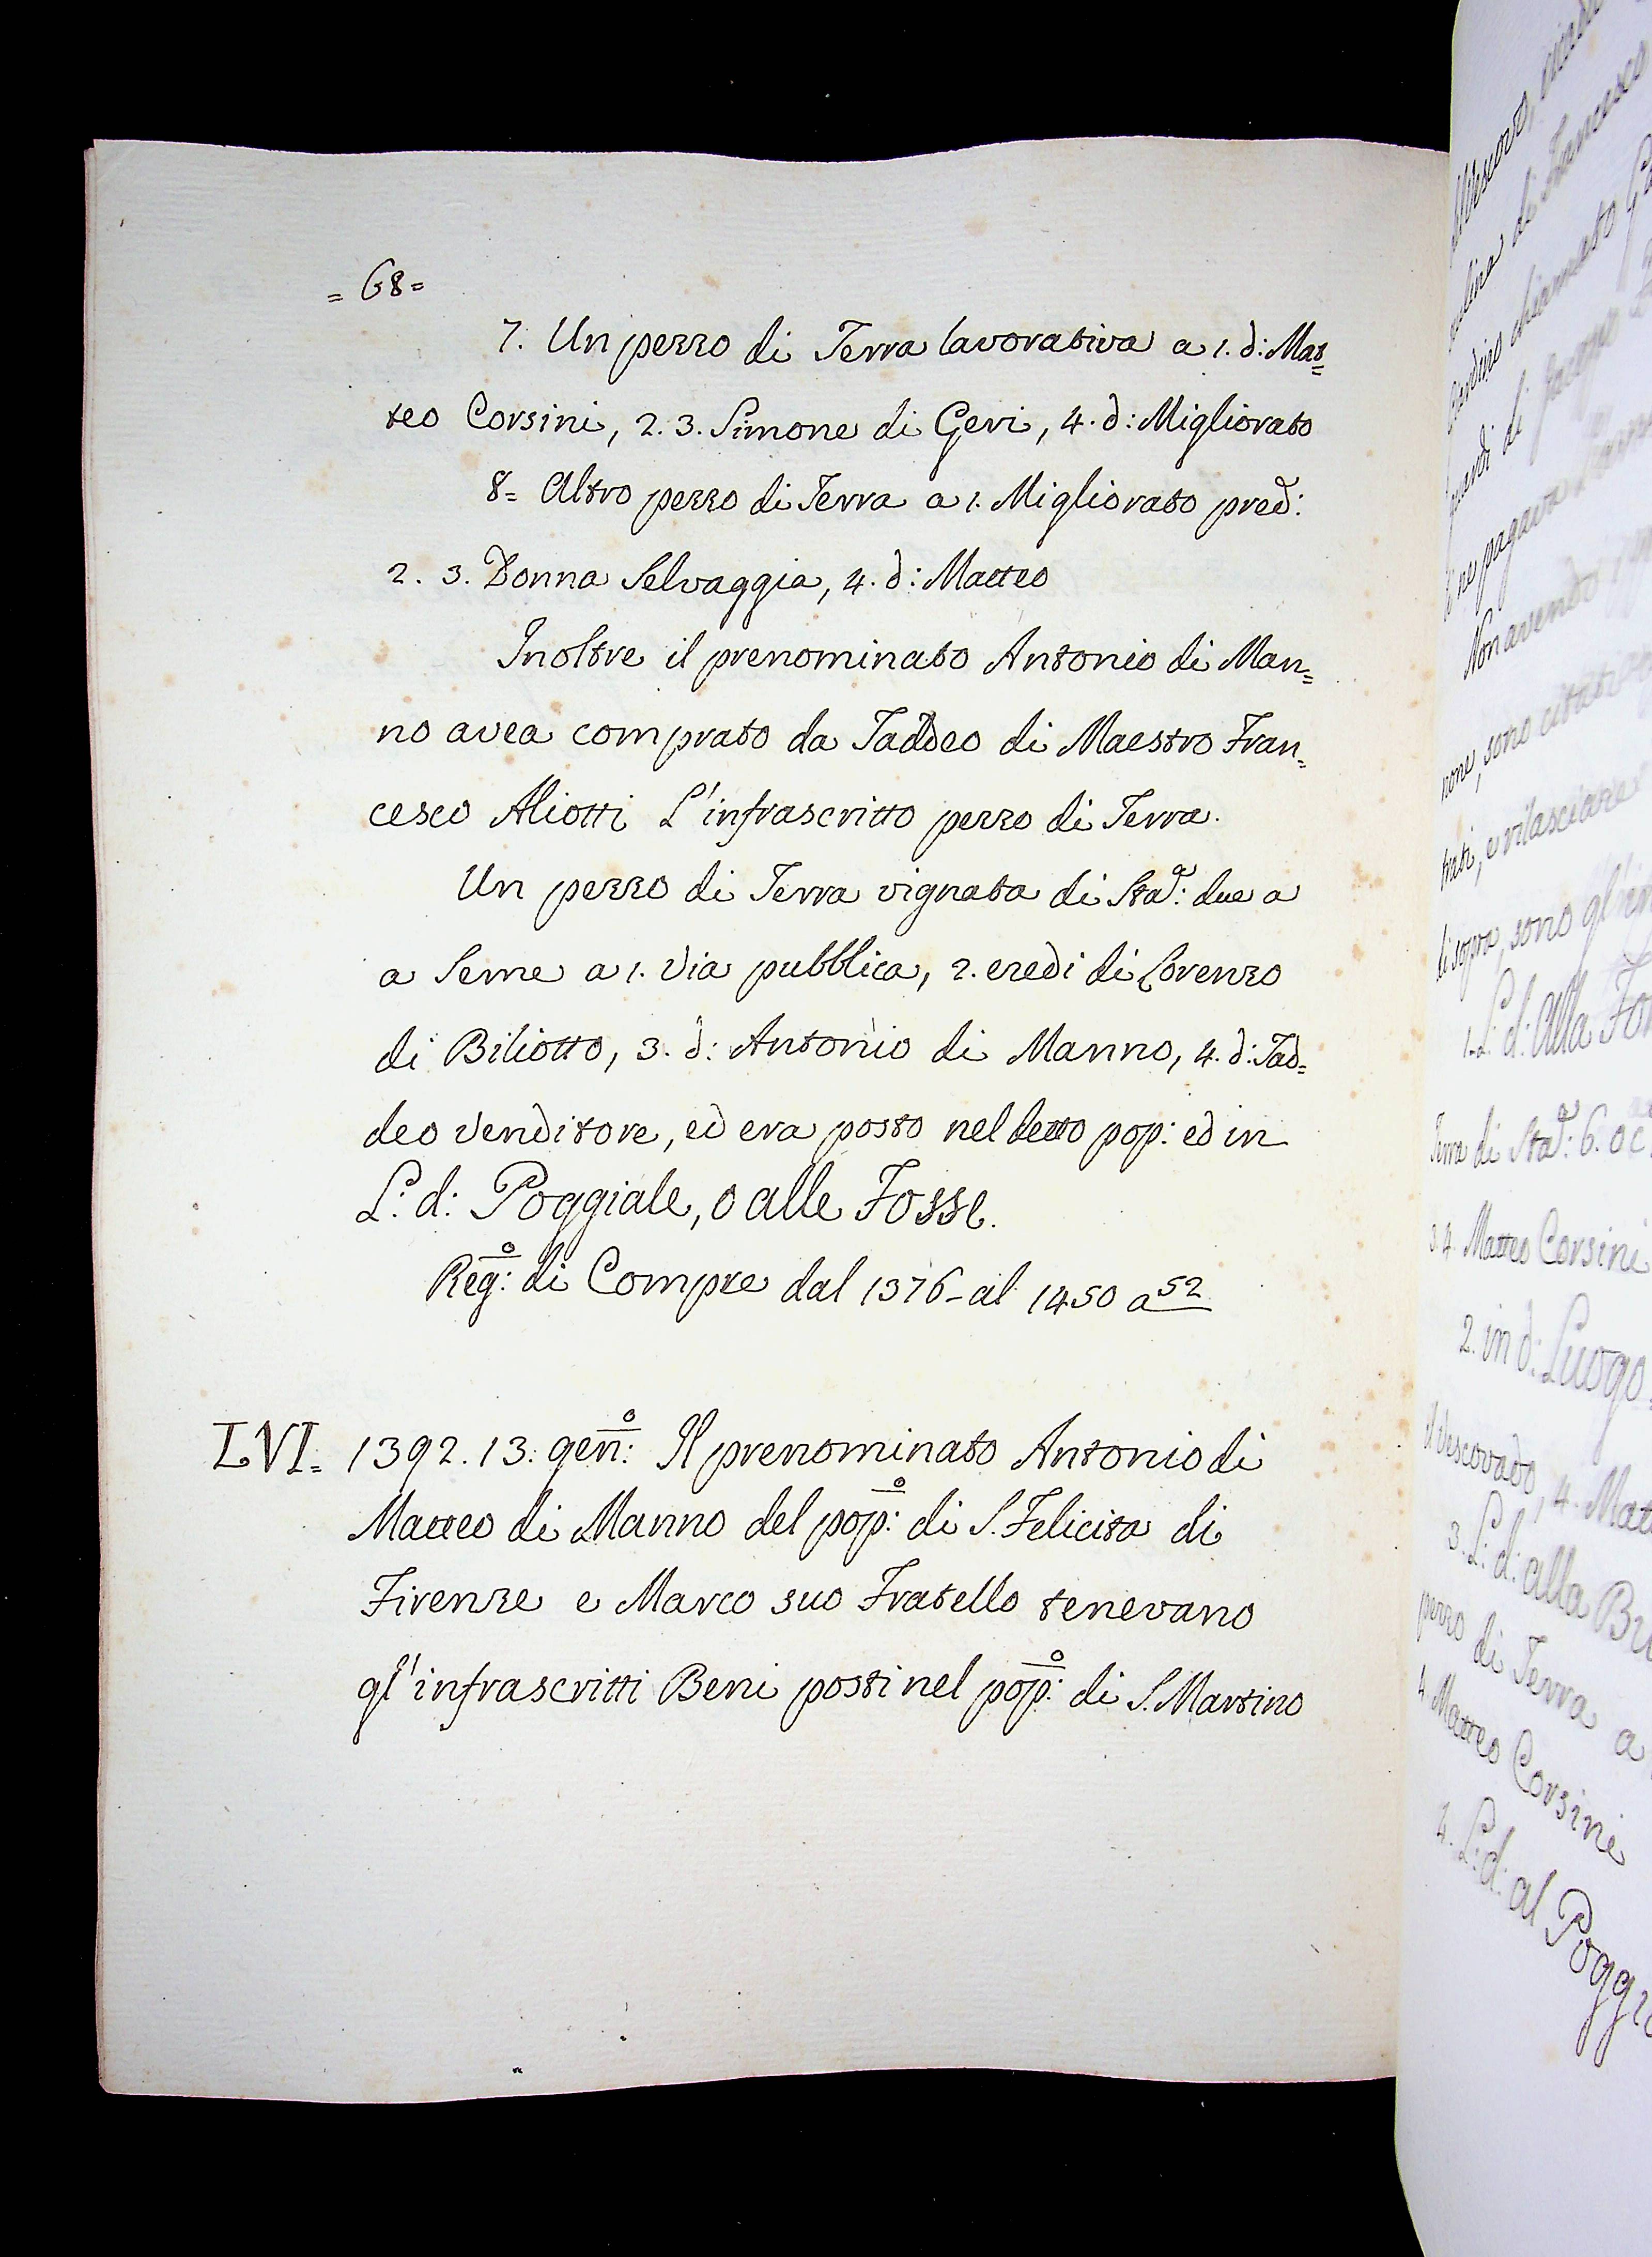 = 68 =
7. Un pezzo di Terra lavorativa a 1. d: Mat=
teo Corsini, 2. 3. Simone di Geri, 4. d: Migliorato
8= Altro pezzo di Terra a 1. Migliorato pred:
2. 3. Donna Selvaggia, 4. d: Matteo
Inoltre il prenominato Antonio di Man=
no avea comprato da Taddeo di Maestro Fran=
cesco Aliotti L'infrascritto pezzo di Terra.
Un pezzo di Terra vignata di Staᵃ: due a
a Seme a 1. Via pubblica, 2. eredi di Lorenzo
di Biliotto, 3. d: Antonio di Manno, 4. d: Tad=
deo Venditore, ed era posto nel detto pop: ed in
L: d: Poggiale, o alle Fosse.
Regº: di Compre dal 1376 - al 1450 a 52
LVI= 1392. 13. genº: Il prenominato Antonio di
Matteo di Manno del popº: di S. Felicita di
Firenze e Marco suo Fratello tenevano
gl'infrascritti Beni posti nel popº: di S. Martino
ne pagava
Non avendo
none, sono citati
trati, e rilasciare
di sopra, sono gl'
1. L: d: alla
Terra di Staᵃ: 6.
3. 4. Matteo Corsini
2. in d: Luogo
il Vescovado, 4.
3. L: d: alla
pezzo di Terra a
4. Matteo Corsini
4. L: d: al